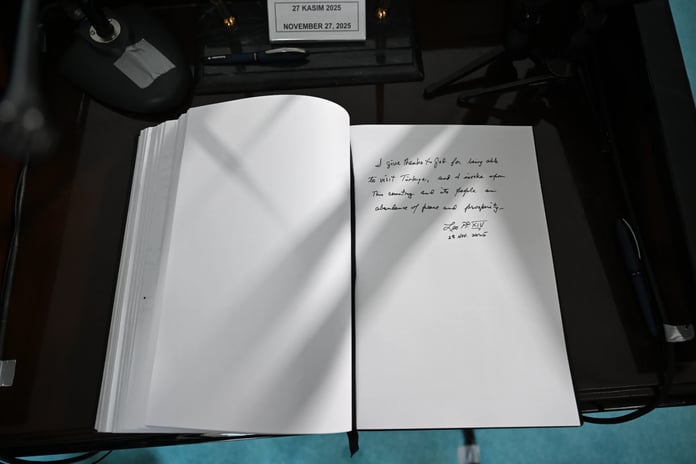 27 KASIM 2025
NOVEMBER 27, 2025
I give thanks to God for being able
to visit Türkiye, and I invoke upon
this country and its people an
abundance of peace and prosperity.
Leo PP XIV
27 Nov. 2025